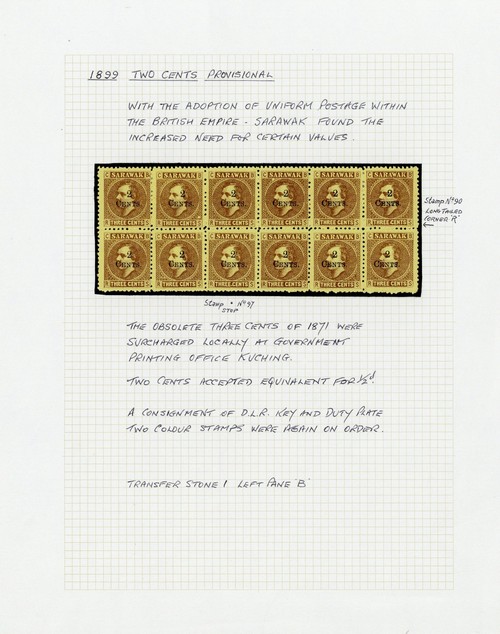 1899 TWO CENTS PROVISIONAL
WITH THE ADOPTION OF UNIFORM POSTAGE WITHIN
THE BRITISH EMPIRE - SARAWAK FOUND THE
INCREASED NEED FOR CERTAIN VALUES.
SARAWAK SARAWAK SARAWAK SARAWAK SARAWAK SARAWAK
2 2 2 2 2 2
CENTS. CENTS. CENTS. CENTS. CENTS. CENTS.
THREE CENTS THREE CENTS THREE CENTS THREE CENTS THREE CENTS THREE CENTS
SARAWAK SARAWAK SARAWAK SARAWAK SARAWAK SARAWAK
2 2 2 2 2 2
CENTS. CENTS. CENTS. CENTS. CENTS. CENTS.
THREE CENTS THREE CENTS THREE CENTS THREE CENTS THREE CENTS THREE CENTS
Stamp Nº 90
LONG TAILED
CORNER 'R'
Stamp • Nº 97
STOP
THE OBSOLETE THREE CENTS OF 1871 WERE
SURCHARGED LOCALLY AT GOVERNMENT
PRINTING OFFICE KUCHING.
TWO CENTS ACCEPTED EQUIVALENT FOR ½d.
A CONSIGNMENT OF D.L.R. KEY AND DUTY PLATE
TWO COLOUR STAMPS WERE AGAIN ON ORDER.
TRANSFER STONE 1 LEFT PANE 'B'